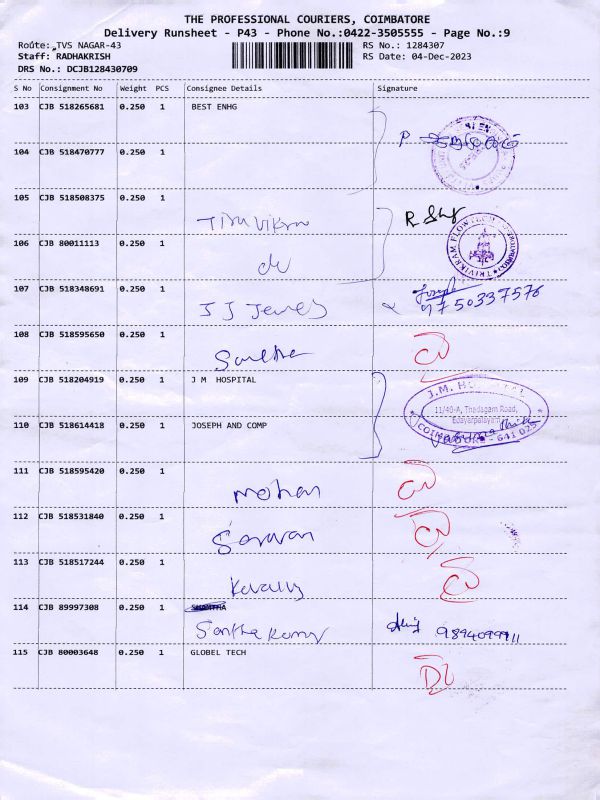 THE PROFESSIONAL COURIERS, COIMBATORE
Delivery Runsheet - P43 - Phone No.:0422-3505555 - Page No.:9
Route: TVS NAGAR-43 RS No.: 1284307
Staff: RADHAKRISH RS Date: 04-Dec-2023
DRS No.: DCJB128430709
S No Consignment No Weight PCS Consignee Details Signature
103 CJB 518265681 0.250 1 BEST ENHG
104 CJB 518470777 0.250 1
105 CJB 518508375 0.250 1
106 CJB 80011113 0.250 1
TRIVIKRAM FLOWTECH
107 CJB 518348691 0.250 1
J J Jenes 9750337576
108 CJB 518595650 0.250 1
109 CJB 518204919 0.250 1 J M HOSPITAL
J.M. HOSPITAL
11/40-A, Thadagam Road,
Edayarpalayam
COIMBATORE - 641 025
110 CJB 518614418 0.250 1 JOSEPH AND COMP
111 CJB 518595420 0.250 1
mohan
112 CJB 518531840 0.250 1
Sarwan
113 CJB 518517244 0.250 1
114 CJB 89997308 0.250 1 SHANTHA
Santha Kumar 9894099911
115 CJB 80003648 0.250 1 GLOBEL TECH